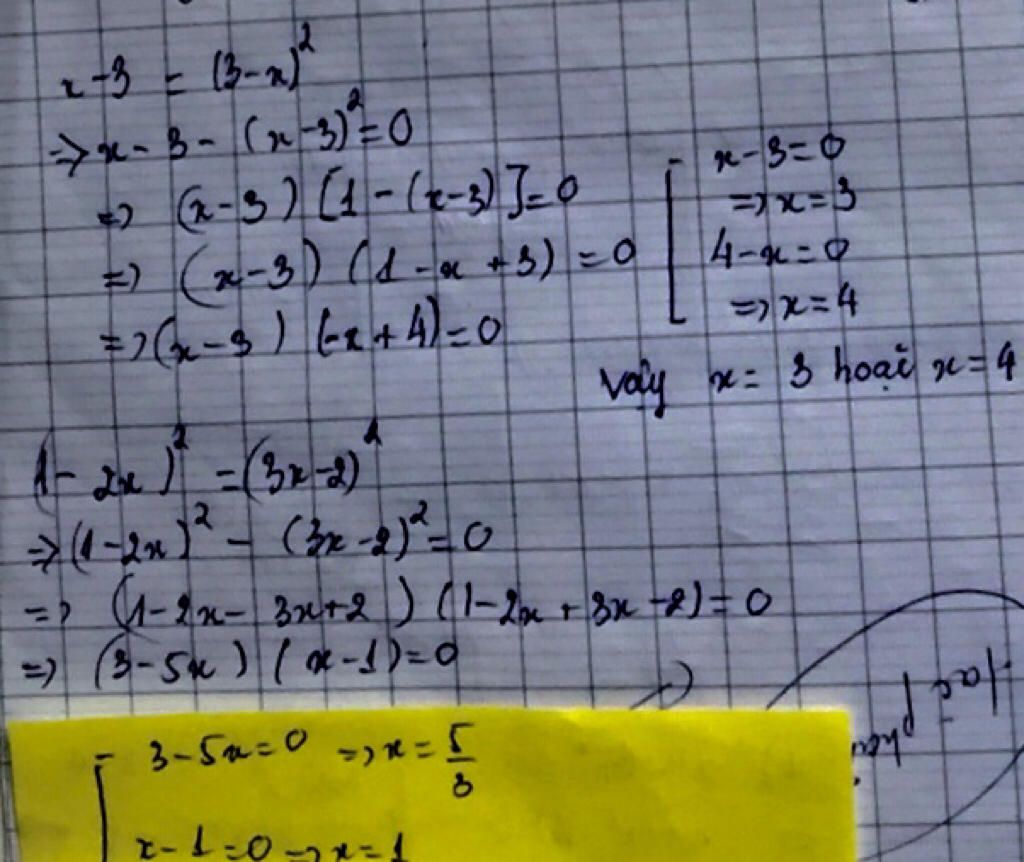 x-3 = (3-x)²
=> x-3-(x-3)²=0
=> (x-3)[1-(x-3)]=0
=> (x-3)(1-x+3)=0
=> (x-3)(-x+4)=0
x-3=0
=> x=3
4-x=0
=> x=4
Vậy x=3 hoặc x=4
(1-2x)² =(3x-2)²
=> (1-2x)² - (3x-2)²=0
=> (1-2x-3x+2)(1-2x+3x-2)=0
=> (3-5x)(x-1)=0
3-5x=0 => x=5/3
x-1=0 => x=1